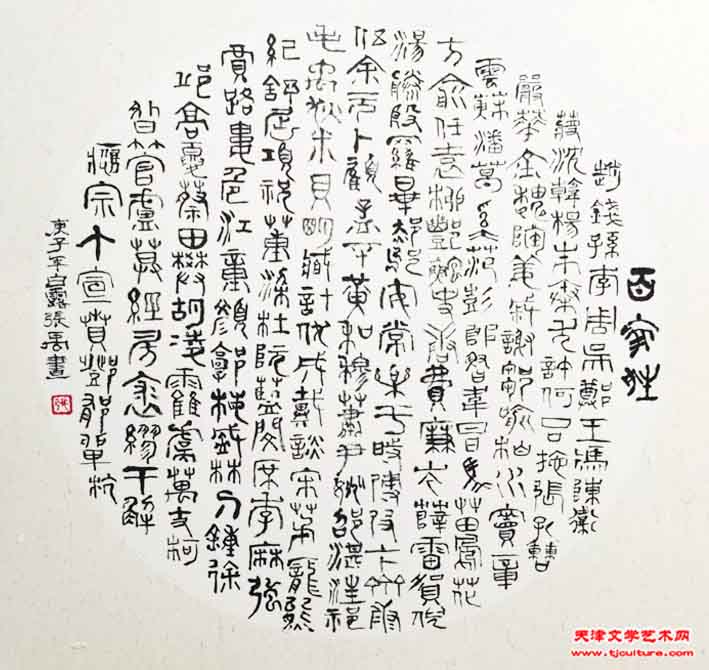 百家姓
趙錢孫李周吳鄭王馮陳衛
蔣沈韓楊朱秦尤許何呂施張孔曹
嚴華金魏陶姜戚謝鄒喻柏水竇章
雲蘇潘葛奚范彭郎魯韋昌馬苗鳳花
方俞任袁柳酆鮑史唐費廉岑薛雷賀倪
湯滕殷羅畢郝鄔安常樂于時傅皮卞齊康
伍余元卜顧孟平黃和穆蕭尹姚邵湛汪祁
毛禹狄米貝明臧計伏成戴談宋茅龐熊
紀舒屈項祝董梁杜阮藍閔席季麻強
賈路婁危江童顏郭梅盛林刁鍾徐
邱高夏蔡田樊胡凌霍虞萬支柯
昝管盧莫經房裘繆干解
應宗丁宣賁鄧郁單杭
庚子年白露張禹書
天津文学艺术网
www.tjculture.com